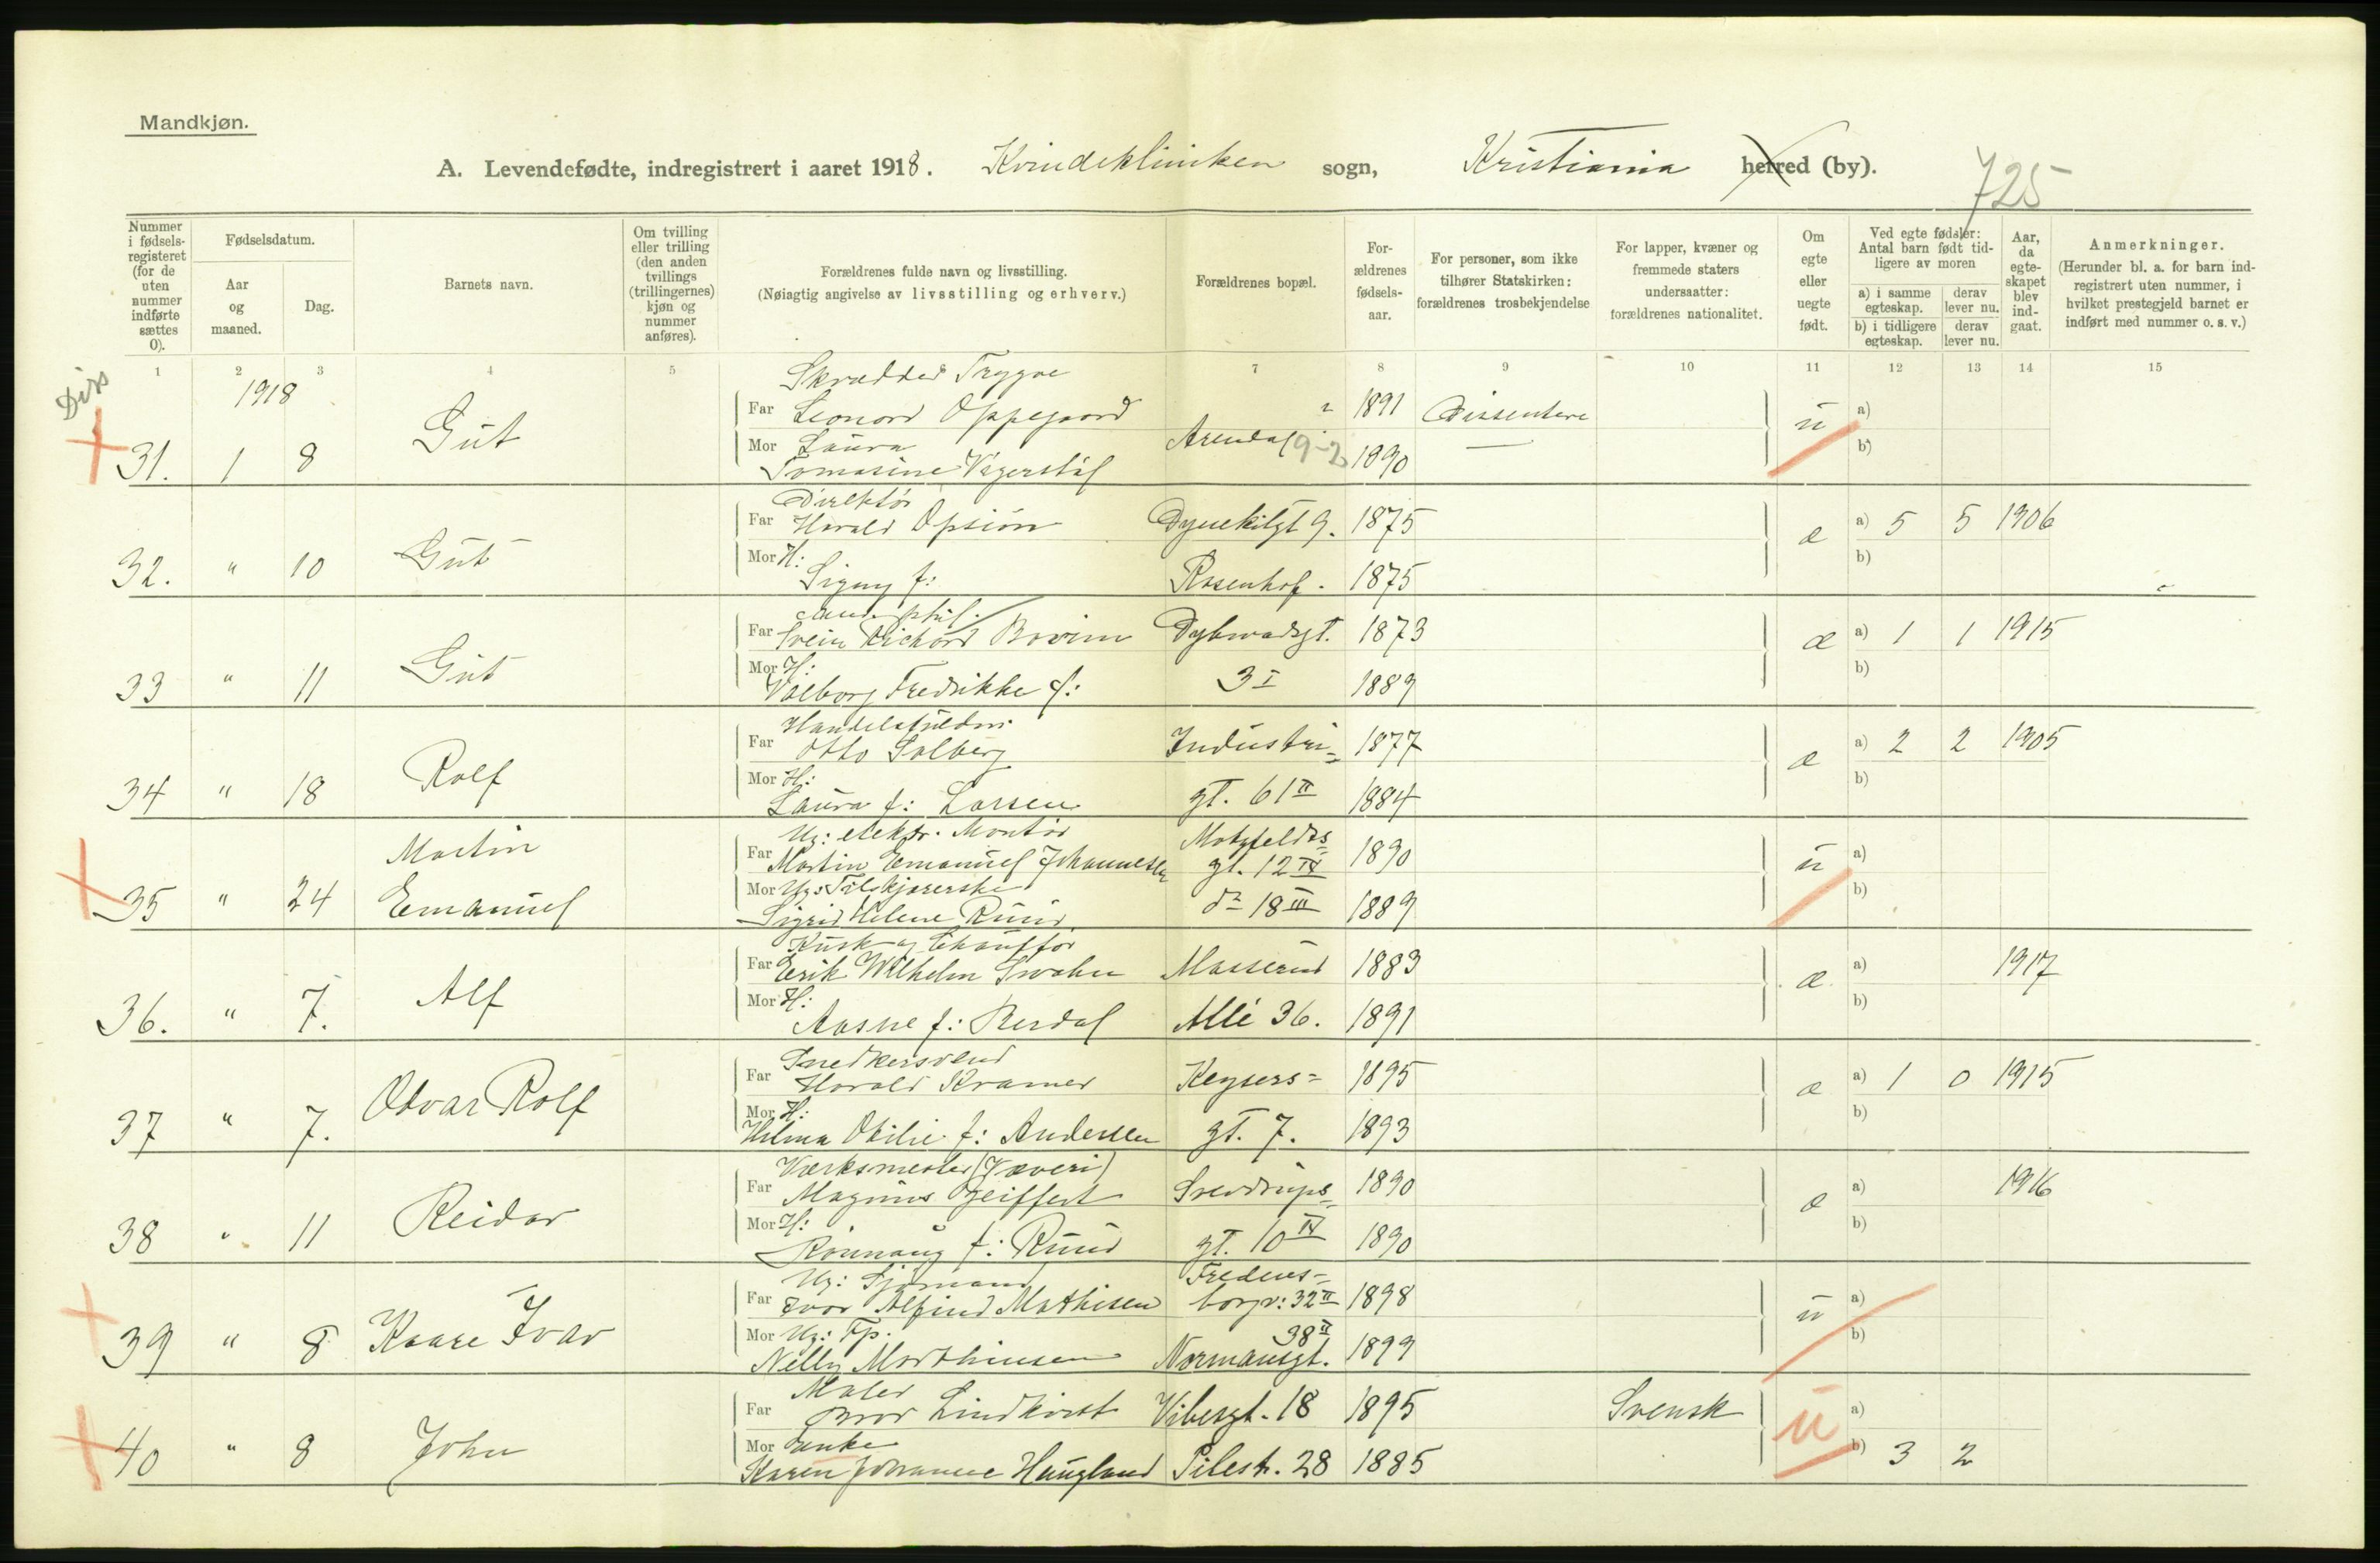 Mandkjøn.
A. Levendefødte, indregistrert i aaret 1918. Kvindekliniken sogn, Kristiania herred (by).
725
Nummer i fødsels-registeret (for de uten nummer indførte sættes 0).
Fødselsdatum.
Aar og maaned.
Dag.
Barnets navn.
Om tvilling eller trilling (den anden tvillings (trillingernes) kjøn og nummer anføres).
Forældrenes fulde navn og livsstilling.
(Nøiagtig angivelse av livsstilling og erhverv.)
Forældrenes bopæl.
For-ældrenes fødsels-aar.
For personer, som ikke tilhører Statskirken: forældrenes trosbekjendelse
For lapper, kvæner og fremmede staters undersaatter: forældrenes nationalitet.
Om egte eller uegte født.
Ved egte fødsler: Antal barn født tid-ligere av moren
a) i samme egteskap.
derav lever nu.
b) i tidligere egteskap.
derav lever nu.
Aar, da egte-skapet blev ind-gaat.
Anmerkninger.
(Herunder bl. a. for barn ind-registrert uten nummer, i hvilket prestegjeld barnet er indført med nummer o. s. v.)
1 2 3 4 5 7 8 9 10 11 12 13 14 15
Diss
1918
Skrædder Trygve
Far Leonard Oppegaard 1891 Dissentere
31. 1 8 Gut Arendal 9-2 u a)
Mor Laura — b)
Tomasine Vegerstøl 1890
Direktør
Far Harald Opsiön Dynekilgt 9. 1875 a) 5 5 1906
32. " 10 Gut æ
Mor H: b)
Signy f: Rosenhof. 1875
cand. phil.
Far Svein Richard Bovim Dybwadsgt. 1873 a) 1 1 1915
33 " 11 Gut æ
Mor H: b)
Valborg Fredrikke f: 3 I 1889
Far Otto Solberg Industri= 1877 a) 2 2 1905
34 " 18 Rolf æ
Mor H: b)
Laura f: Larsen gt. 61 II 1884
Ug: elektr. Montør Motzfeldts=
Far Martin Emanuel Johannesen gt. 12 IV 1890 a)
35 " 24 Martin Emanuel u
Mor Ug: Tilskjærerske b)
Sigrid Helene Ruud do 18 III 1889
Kusk og Chauffør
Far Erik Wilhelm Swahn Madserud 1883 a) 1917
36. " 7. Alf æ
Mor H: b)
Aasne f: Berdal Allé 36. 1891
Snedkersvend
Far Harald Kramer Keysers= 1895 a) 1 0 1915
37 " 7. Odvar Rolf æ
Mor H: b)
Hilma Otilie f: Andersen gt. 7. 1893
Værksmester (Væveri)
Far Magnus Geiffert Sverdrups= 1890 a) 1916
38 " 11 Reidar æ
Mor H: b)
Rönnaug f: Ruud gt. 10 IV 1890
Ug: Sjømand Fredens-
Far Ivar Alfind Mathisen borgv: 32 II 1898 a)
39 " 8 Kaare Ivar u
Mor Ug: Tp. 38 II b)
Nelly Marthinsen Normansgt. 1899
Maler
Far Bror Lindkvist Vibesgt. 18 1895 Svensk a)
40 " 8 John u
Mor Enke b) 3 2
Karen Johanne Haugland Pilestr. 28 1885